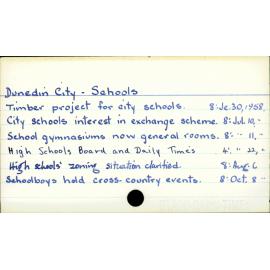 Dunedin City - Schools
Timber project for city schools. 8: Je.30, 1958.
City schools interest in exchange scheme. 8: Jul. 10, "
School gymnasiums now general rooms. 8: " 11, "
High Schools Board and Daily Times 4: " 22, "
High schools' zoning situation clarified. 8: Aug. 6
Schoolboys hold cross-country events. 8: Oct. 8 "